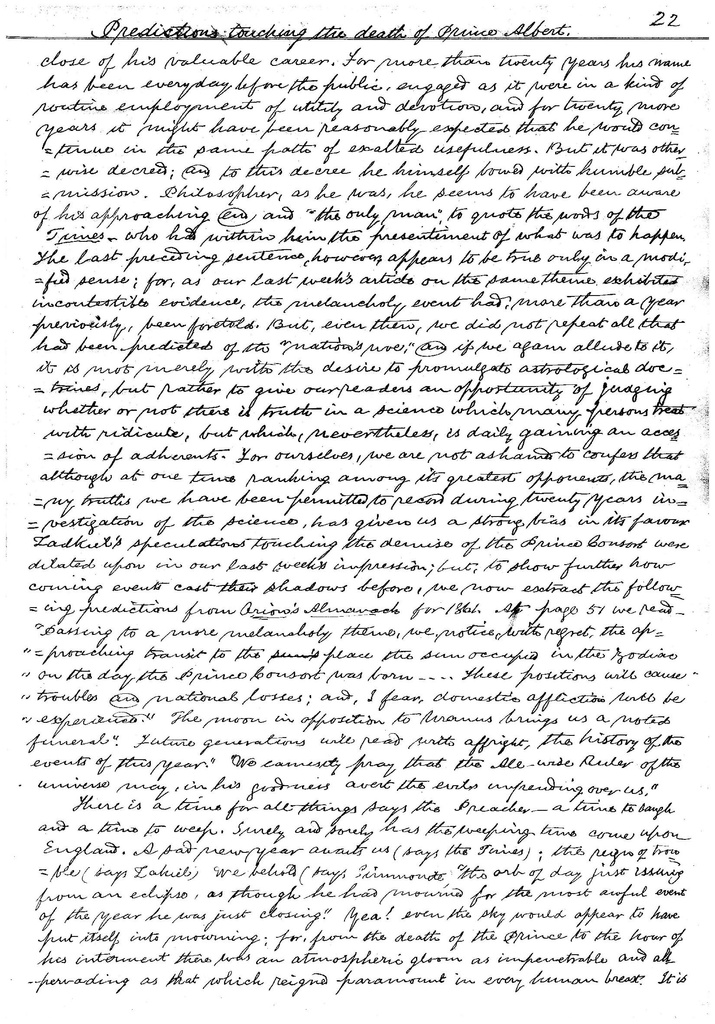 22
Predictions touching the death of Prince Albert.
close of his valuable career. For more than twenty years his name
has been everyday before the public, engaged as it were in a kind of
routine employment of utility and devotion, and for twenty more
years it might have been reasonably expected that he would con=
=tinue in the same path of exalted usefulness. But it was other
=wise decred; and to this decree he himself bowed with humble sub=
=mission. Philosopher, as he was, he seems to have been aware
of his approaching end and "the only man", to quote the words of the
Times - who had within him the presentiment of what was to happen.
The last preceding sentence, however, appears to be true only in a modi=
=fied sense; for, as our last week's article on the same theme exhibited
incontestible evidence, the melancholy event had, more than a year
previously, been foretold. But, even then, we did not repeat all that
had been predicted of the "nation's woe," and if we again allude to it,
it is not merely with the desire to promulgate astrological doc=
=trines, but rather to give our readers an opportunity of judging
whether or not there is truth in a science which many persons treat
with ridicule, but which, nevertheless, is daily gaining an acces
=sion of adherents. For ourselves, we are not ashamd to confess that
although at one time ranking among its greatest opponents, the ma=
=ny truths we have been permitted to record during twenty years in=
=vestigation of the science, has given us a strong bias in its favour
Zadkiel's speculations touching the demise of the Prince Consort were
dilated upon in our last week's impression; but, to show further how
coming events cast their shadows before, we now extract the follow=
=ing predictions from Orion's Almanack for 1861. At page 51 we read -
"Passing to a more melancholy theme, we notice, with regret, the ap=
"=proaching transit to the sun's place the sun occupied in the Zodiac
"on the day the Prince Consort was born .... These positions will cause "
"troubles and national losses; and, I fear, domestic affliction will be
"experienced." The moon in opposition to Uranus brings us a noted
funeral". Future generations will read with affright, the history of the
events of this year." We earnestly pray that the All-wise Ruler of the
universe may, in his goodness avert the evils impending over us."
There is a time for all things says the Preacher - a time to laugh
and a time to weep. Surely and sorely has the weeping time come upon
England. A sad new year awaits us (says the Times); the reign of trou
=ble (says Zakiel) We behold (says Simmonds "the orb of day just issuing
from an eclipse, as though he had mourned for the most awful event
of the year he was just closing." Yea! even the sky would appear to have
put itself into mourning; for, from the death of the Prince to the hour of
his interment there was an atmospheric gloom as impenetrable and all
-pervading as that which reignd paramount in every human breast. It is